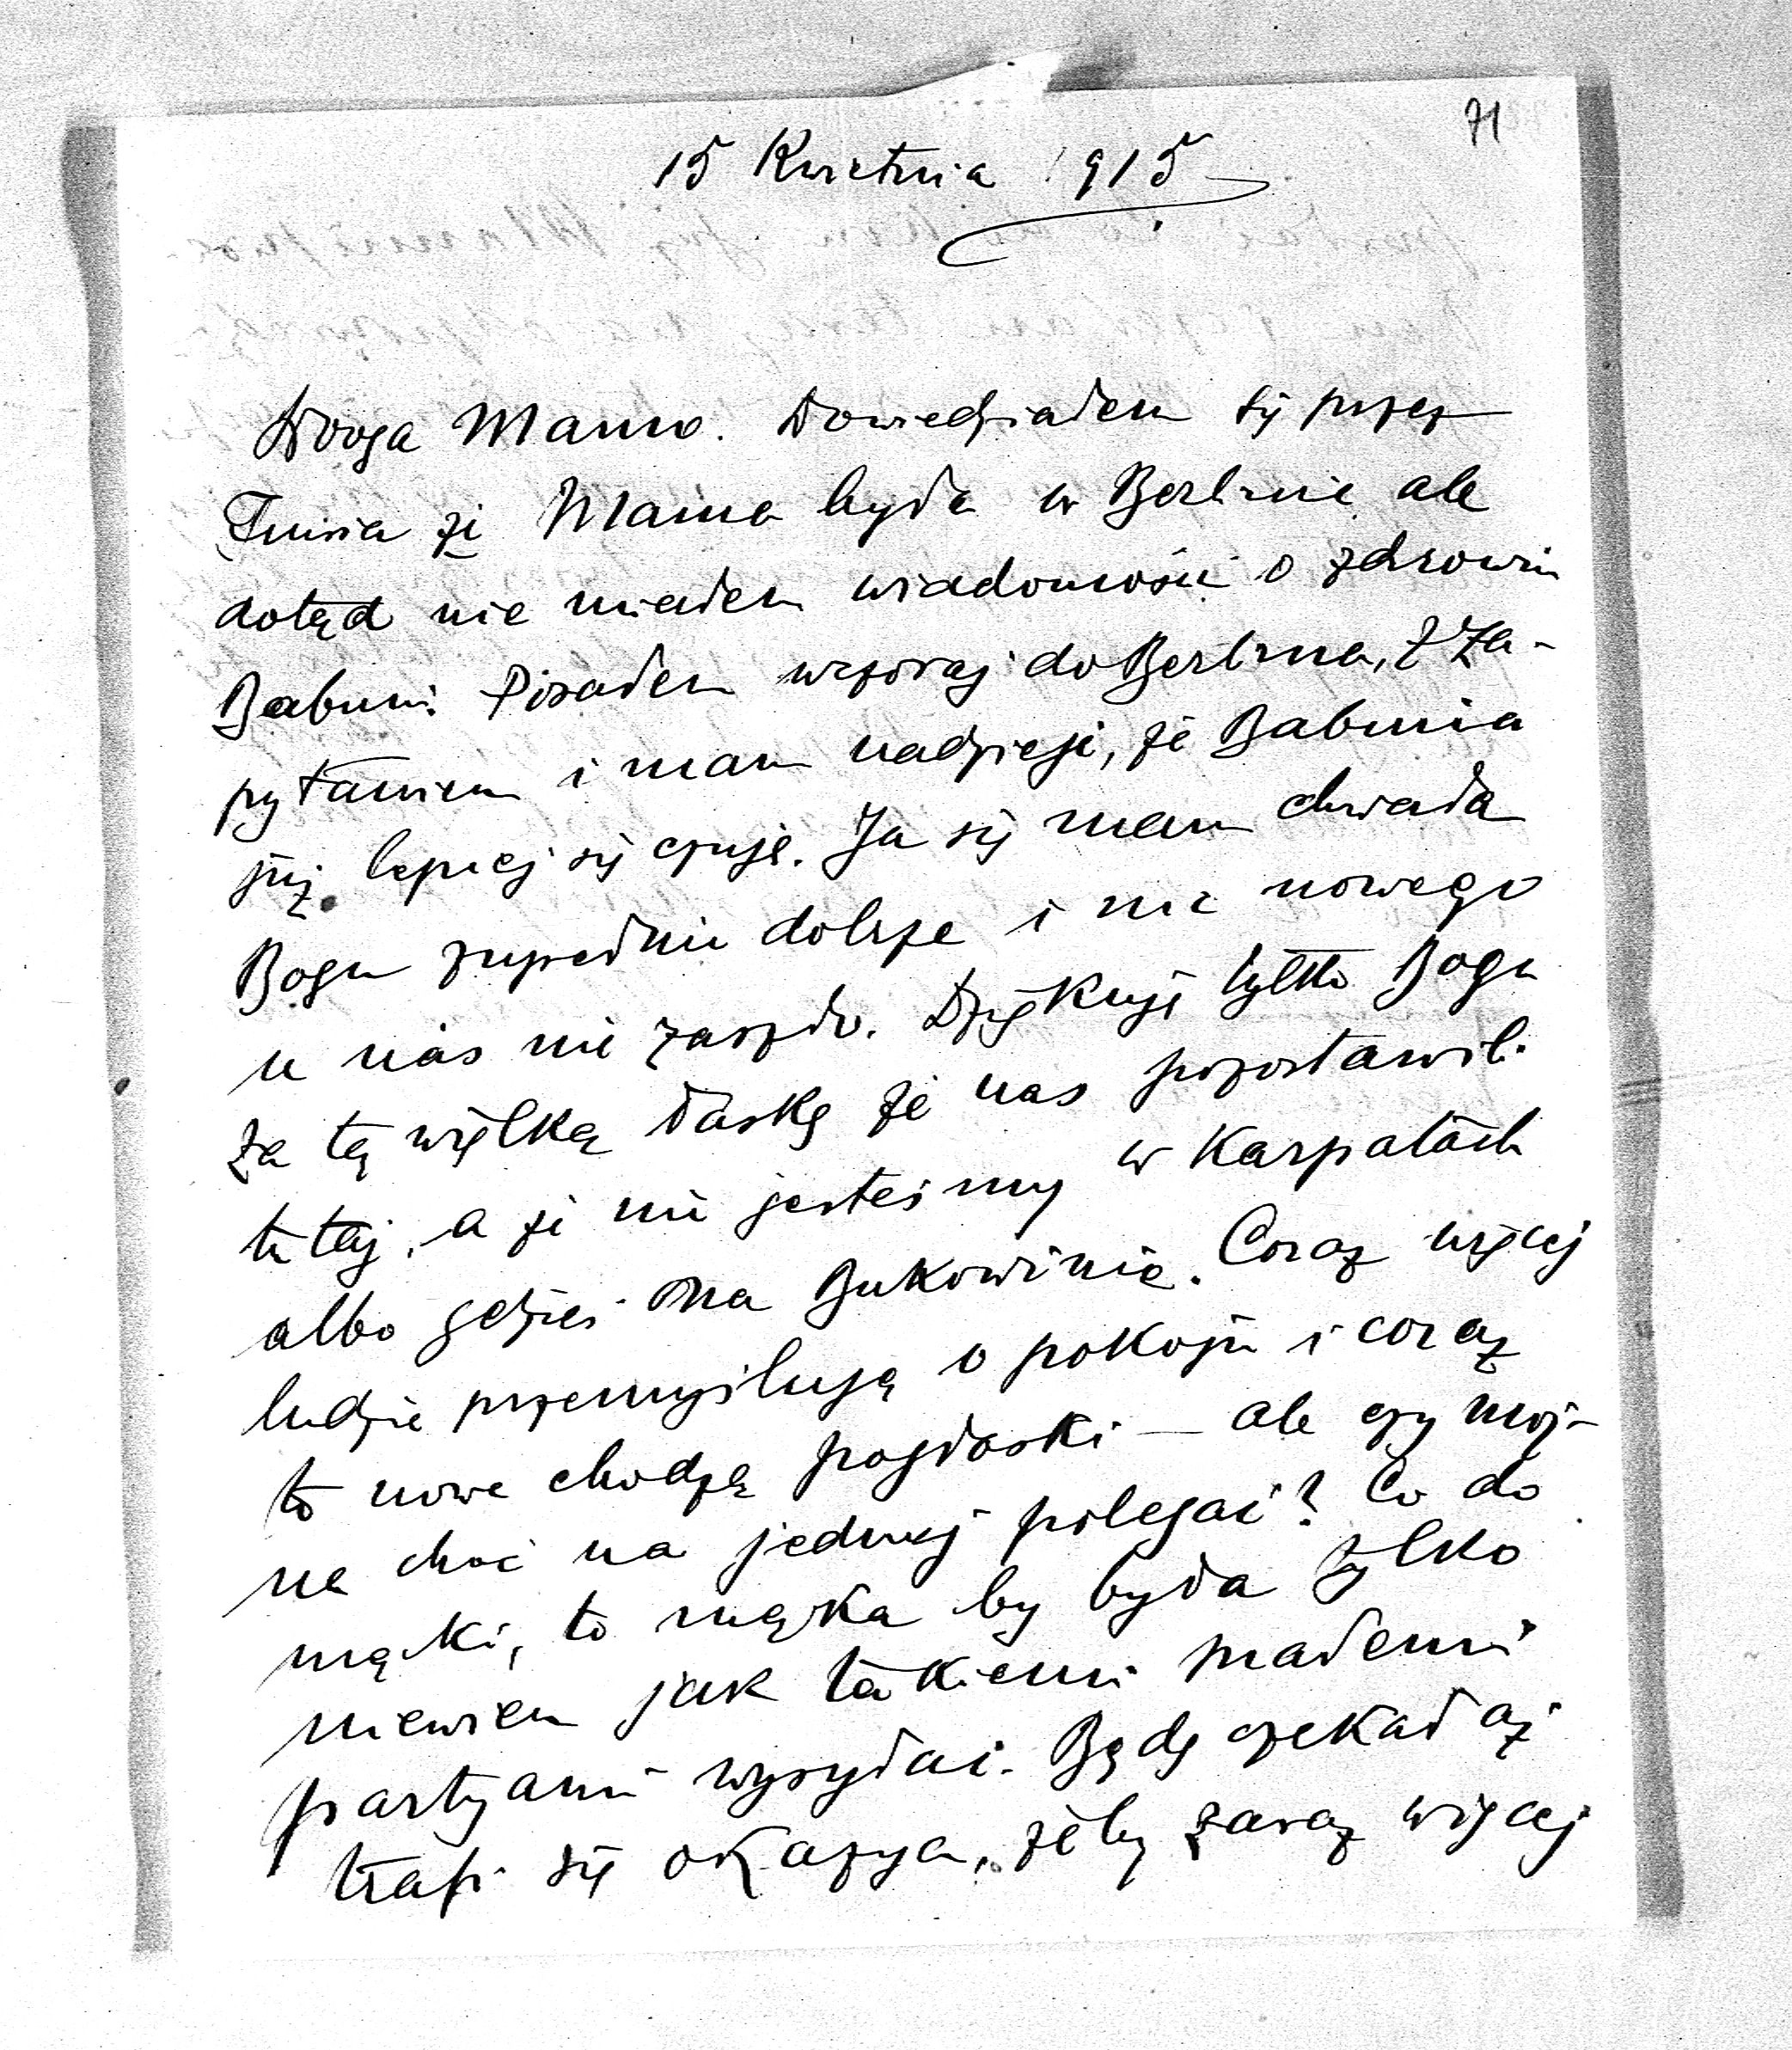 71
15 Kwietnia 1915
Droga Mamo. Dowiedziałem się przez
że Mama była w Berlinie ale
dotąd nie miałem wiadomości o zdrowiu
Babuni. Pisałem wczoraj do Berlina, z za-
pytaniem i mam nadzieję, że Babunia
już lepiej się czuje. Ja się mam chwała
Bogu zupełnie dobrze i nic nowego
u nas nie zaszło. Dziękuję tylko Bogu
za tą wielką łaskę że nas pozostawili
tutaj, a że nie jesteśmy w Karpatach
albo gdzieś na Bukowinie. Coraz więcej
ludzie przemyślują o pokoju i coraz
to nowe chodzą pogłoski — ale czy moż-
na choć na jednej polegać? Co do
mąki, to mąka by była tylko
niewiem jak takiemi małemi
partyami wysyłać. Będę czekał aż
trafi się okazya, żeby zaraz więcej